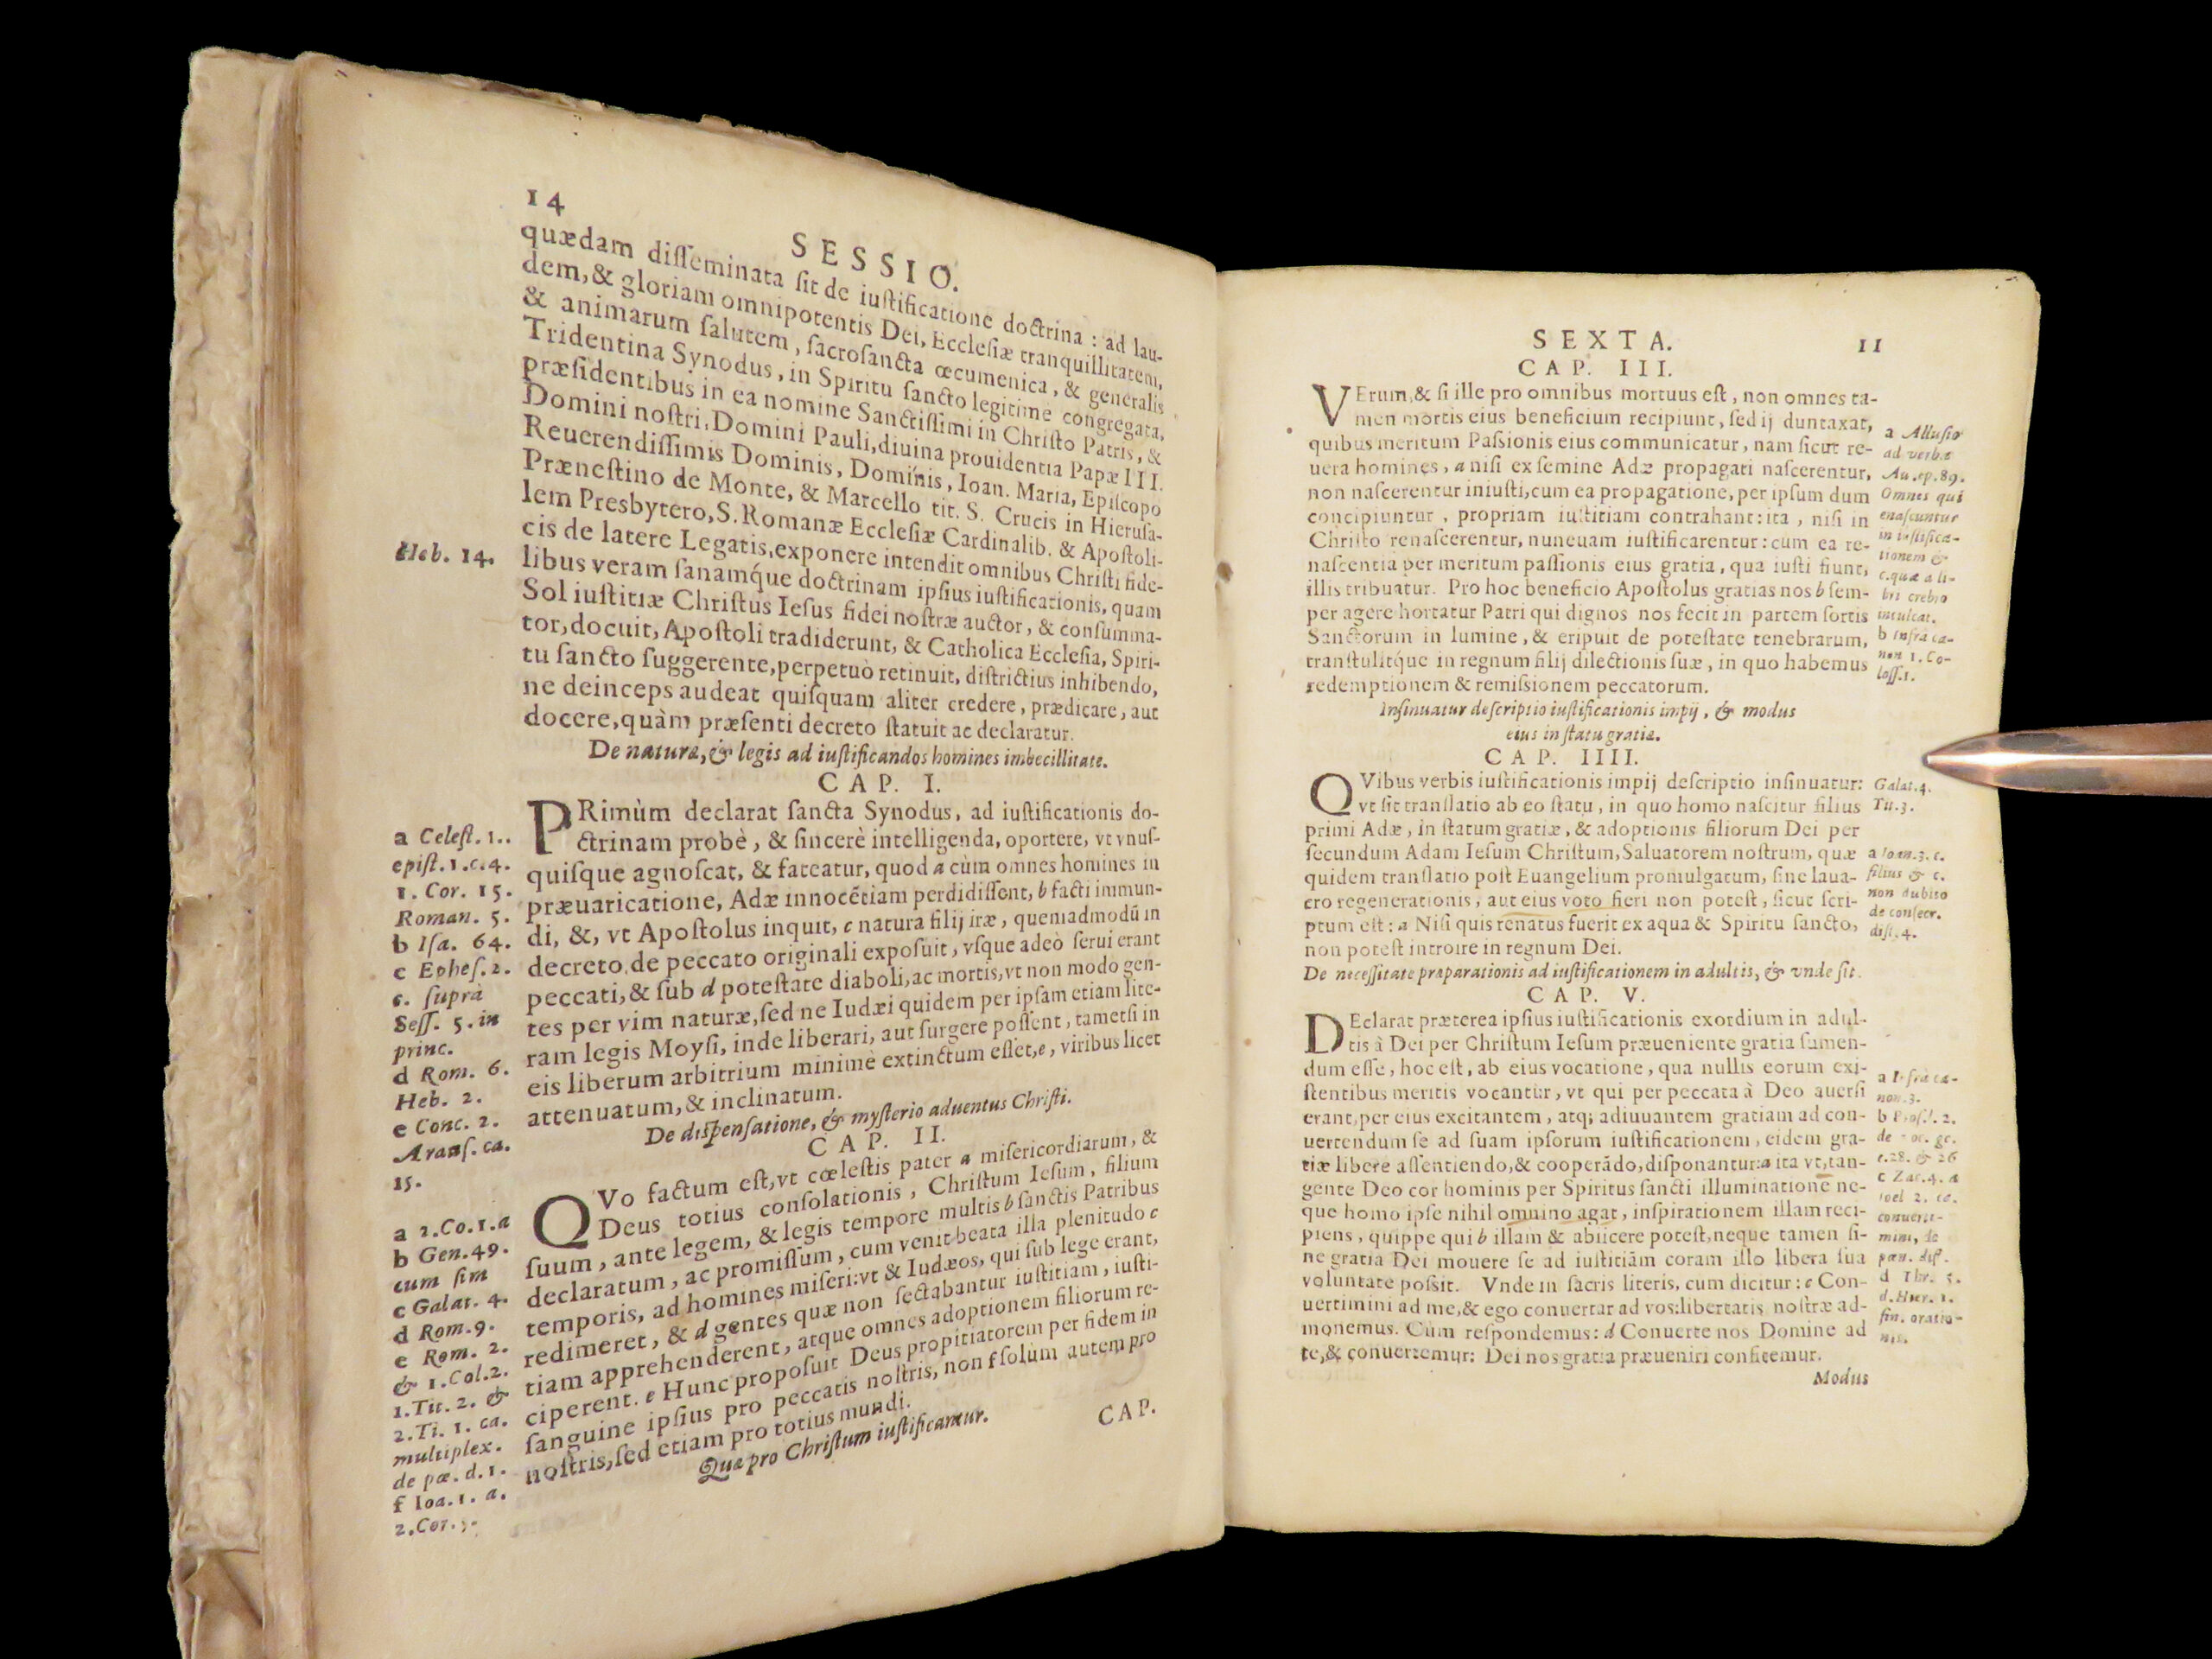 14
SESSIO.
quædam diſſeminata ſit de iuſtificatione doctrina : ad lau-
dem,& gloriam omnipotentis Dei, Eccleſiæ tranquillitatem,
& animarum ſalutem, ſacroſancta œcumenica, & generalis
Tridentina Synodus, in Spiritu ſancto legitime congregata,
præſidentibus in ea nomine Sanctiſſimi in Chriſto Patris, &
Domini noſtri, Domini Pauli, diuina prouidentia Papæ III.
Reuerendiſſimis Dominis, Dominis, Ioan. Maria, Epiſcopo
Præneſtino de Monte, & Marcello tit. S. Crucis in Hieruſa-
lem Presbytero, S. Romanæ Eccleſiæ Cardinalib. & Apoſtoli-
cis de latere Legatis, exponere intendit omnibus Chriſti fide-
libus veram ſanamq́ue doctrinam ipſius iuſtificationis, quam
Sol iuſtitiæ Chriſtus Ieſus fidei noſtræ auctor, & conſumma-
tor, docuit, Apoſtoli tradiderunt, & Catholica Eccleſia, Spiri-
tu ſancto ſuggerente, perpetuò retinuit, diſtrictius inhibendo,
ne deinceps audeat quiſquam aliter credere, prædicare, aut
docere, quàm præſenti decreto ſtatuit ac declaratur.
Heb. 14.
De natura, & legis ad iuſtificandos homines imbecillitate.
CAP. I.
PRimùm declarat ſancta Synodus, ad iuſtificationis do-
ctrinam probè, & ſincerè intelligenda, oportere, vt vnuſ-
quiſque agnoſcat, & fateatur, quod a cùm omnes homines in
præuaricatione, Adæ innocẽtiam perdidiſſent, b facti immun-
di, &, vt Apoſtolus inquit, c natura filij iræ, quemadmodũ in
decreto de peccato originali expoſuit, vſque adeò ſerui erant
peccati, & ſub d poteſtate diaboli, ac mortis, vt non modo gen-
tes per vim naturæ, ſed ne Iudæi quidem per ipſam etiam lite-
ram legis Moyſi, inde liberari, aut ſurgere poſſent, tametſi in
eis liberum arbitrium minimè extinctum eſſet, e, viribus licet
attenuatum, & inclinatum.
a Celeſt. 1..
epiſt. 1. c. 4.
1. Cor. 15.
Roman. 5.
b Iſa. 64.
c Epheſ. 2.
c. ſuprà
Seſſ. 5. in
princ.
d Rom. 6.
Heb. 2.
e Conc. 2.
Arauſ. ca.
15.
De diſpenſatione, & myſterio aduentus Chriſti.
CAP. II.
QVo factum eſt, vt cœleſtis pater a miſericordiarum, &
Deus totius conſolationis, Chriſtum Ieſum, filium
ſuum, ante legem, & legis tempore multis b ſanctis Patribus
declaratum, ac promiſſum, cum venit beata illa plenitudo c
temporis, ad homines miſeri: vt & Iudæos, qui ſub lege erant,
redimeret, & d gentes quæ non ſectabantur iuſtitiam, iuſti-
tiam apprehenderent, atque omnes adoptionem filiorum re-
ciperent. e Hunc propoſuit Deus propitiatorem per fidem in
ſanguine ipſius pro peccatis noſtris, non f ſolùm autem pro
noſtris, ſed etiam pro totius mundi.
a 2. Co. 1. a
b Gen. 49.
cum ſim
c Galat. 4.
d Rom. 9.
e Rom. 2.
& 1. Col. 2.
1. Tit. 2. &
2. Ti. 1. ca.
multiplex.
de pœ. d. 1.
f Ioa. 1. a.
2. Cor.
Qua pro Chriſtum iuſtificamur.
CAP.
SEXTA.
11
CAP. III.
VErum, & ſi ille pro omnibus mortuus eſt, non omnes ta-
men mortis eius beneficium recipiunt, ſed ij duntaxat,
quibus meritum Paſsionis eius communicatur, nam ſicut re-
uera homines, a niſi ex ſemine Adæ propagati naſcerentur,
non naſcerentur iniuſti, cum ea propagatione, per ipſum dum
concipiuntur, propriam iuſtitiam contrahant: ita, niſi in
Chriſto renaſcerentur, nunquam iuſtificarentur: cum ea re-
naſcentia per meritum paſſionis eius gratia, qua iuſti fiunt,
illis tribuatur. Pro hoc beneficio Apoſtolus gratias nos b ſem-
per agere hortatur Patri qui dignos nos fecit in partem ſortis
Sanctorum in lumine, & eripuit de poteſtate tenebrarum,
tranſtulitq́ue in regnum filij dilectionis ſuæ, in quo habemus
redemptionem & remiſsionem peccatorum.
a Alluſio
ad verba
Au. ep. 89.
Omnes qui
enaſcuntur
in iuſtifica-
tionem &
c. quæ a li-
bri crebro
inculcat.
b infrà ca-
non 1. Co-
loſſ. 1.
Inſinuatur deſcriptio iuſtificationis impij, & modus
eius in ſtatu gratiæ.
CAP. IIII.
QVibus verbis iuſtificationis impij deſcriptio inſinuatur:
vt ſit tranſlatio ab eo ſtatu, in quo homo naſcitur filius
primi Adæ, in ſtatum gratiæ, & adoptionis filiorum Dei per
ſecundum Adam Ieſum Chriſtum, Saluatorem noſtrum, quæ
quidem tranſlatio poſt Euangelium promulgatum, ſine laua-
cro regenerationis, aut eius voto fieri non poteſt, ſicut ſcri-
ptum eſt: a Niſi quis renatus fuerit ex aqua & Spiritu ſancto,
non poteſt introire in regnum Dei.
Galat. 4.
Tit. 3.
a Ioan. 3. c.
filius & c.
non dubito
de conſecr.
diſt. 4.
De neceſſitate præparationis ad iuſtificationem in adultis, & vnde ſit.
CAP. V.
DEclarat præterea ipſius iuſtificationis exordium in adul-
tis à Dei per Chriſtum Ieſum præueniente gratia ſumen-
dum eſſe, hoc eſt, ab eius vocatione, qua nullis eorum exi-
ſtentibus meritis vocantur, vt qui per peccata à Deo auerſi
erant, per eius excitantem, atq; adiuuantem gratiam ad con-
uertendum ſe ad ſuam ipſorum iuſtificationem, eidem gra-
tiæ libere aſſentiendo, & cooperãdo, diſponantur: a ita vt, tan-
gente Deo cor hominis per Spiritus ſancti illuminatione ne-
que homo ipſe nihil omnino agat, inſpirationem illam reci-
piens, quippe qui b illam & abiicere poteſt, neque tamen ſi-
ne gratia Dei mouere ſe ad iuſtitiãm coram illo libera ſua
voluntate poſsit. Vnde in ſacris literis, cum dicitur: c Con-
uertimini ad me, & ego conuertar ad vos: libertatis noſtræ ad-
monemus. Cùm reſpondemus: d Conuerte nos Domine ad
te, & conuertemur: Dei nos gratia præueniri confitemur.
a Infrà ca-
non. 3.
b Proſ. l. 2.
de voc. ge.
c. 28. & 26
c Zac. 4. a
Ioel 2. ca.
conuerti-
mini, de
pœn. diſt.
d Thr. 5.
d. Hier. 1.
fin. oratio-
nis.
Modus